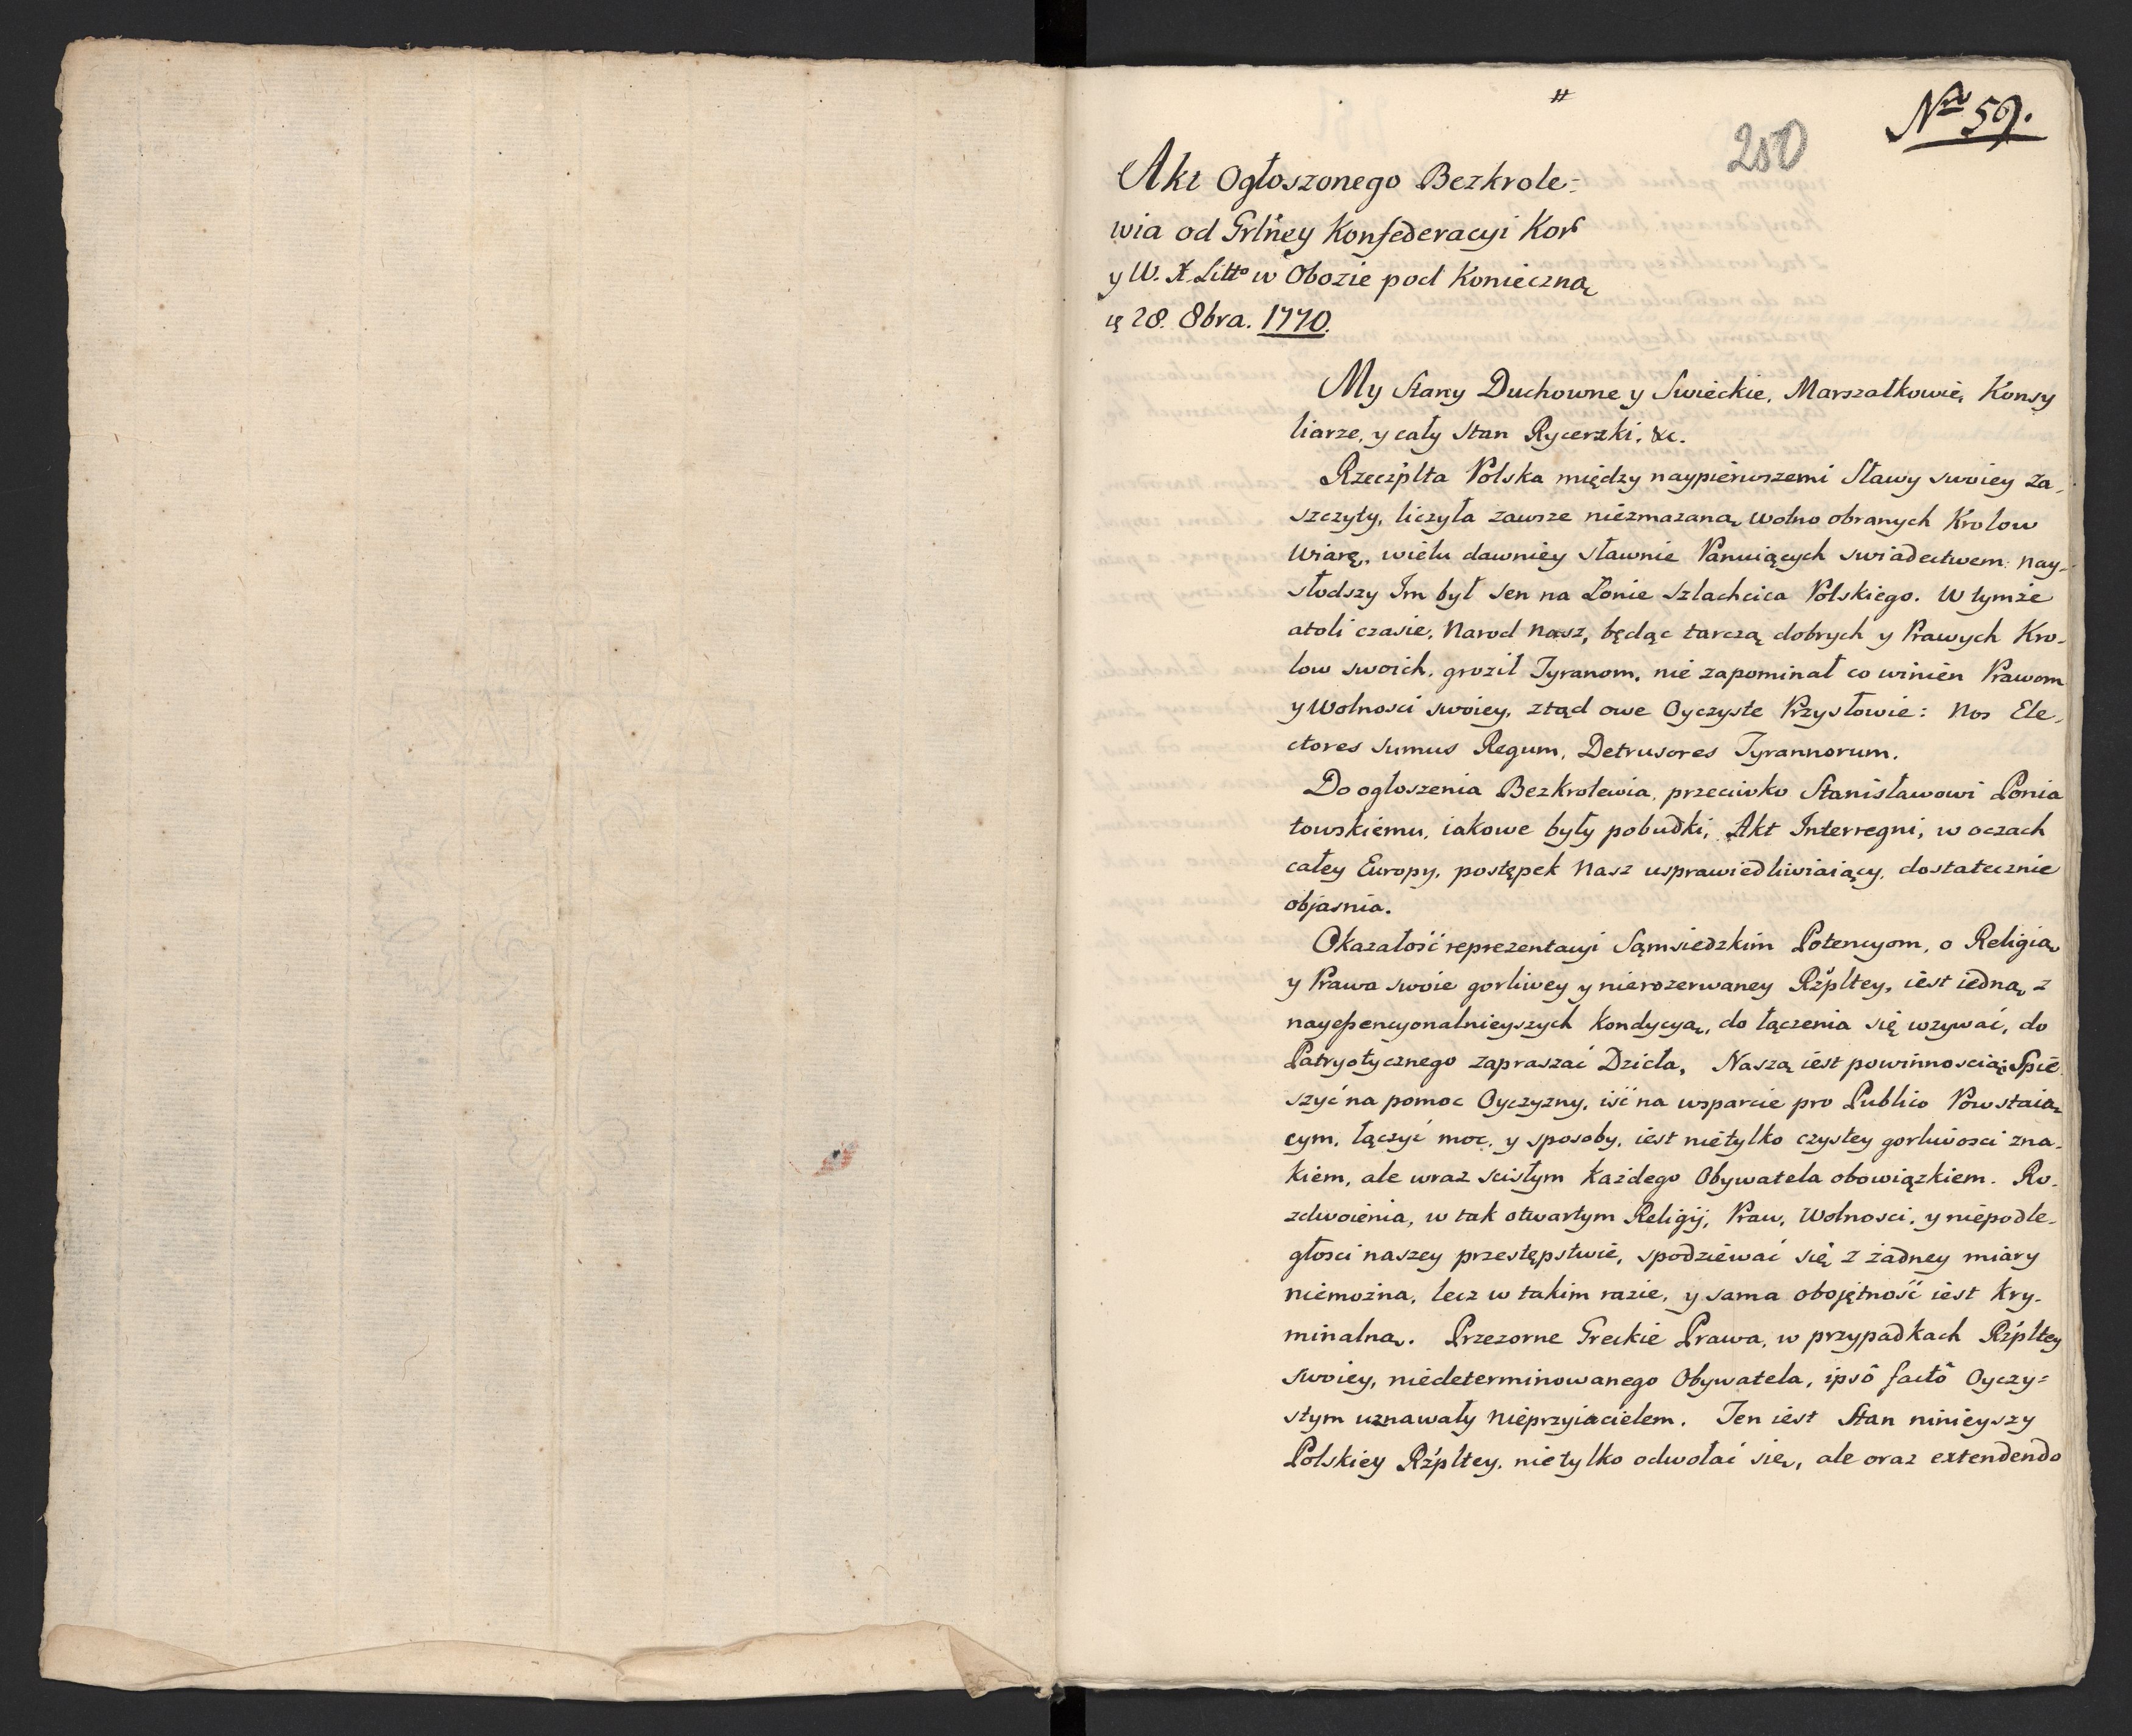 Nro 59.
250
Akt Ogłoszonego Bezkrole-
wia od Grlney Konfederacyi Kor
y W. X. Litto w Obozie pod Konieczną
28. 8bra. 1770.
My Stany Duchowne y Swieckie, Marszałkowie, Konsy
liarze, y cały Stan Rycerzki, &c.
Rzeczplta Polska między naypierwszemi Sławy swoiey Za-
szczyty, liczyła zawsze niezmazaną wolno obranych Krolow
Wiarę, wielu dawniey sławnie Panuiących swiadectwem nay-
słodszy Im był sen na Łonie Szlachcica Polskiego. W tymże
atoli czasie, Narod Nasz, będąc tarczą dobrych y Prawych Kro-
low swoich, groził Tyranom, nie zapominał co winien Prawom
y Wolnosci swoiey, ztąd owe Oyczyste Przysłowie: Nos Ele-
ctores sumus Regum, Detrusores Tyrannorum.
Do ogłoszenia Bezkrolewia, przeciwko Stanisławowi Ponia
towskiemu, iakowe były pobudki, Akt Interregni, w oczach
całey Europy, postępek Nasz usprawiedliwiaiący, dostatecznie
objasnia.
Okazałość reprezentacyi Sąmsiedzkim Potencyom, o Religią
y Prawa swoie gorliwey y nierozerwaney Rżpltey, iest iedną z
nayessencyonalnieyszych Kondycyą, do łączenia się wzywać, do
Patryotycznego zapraszać Dzieła, Naszą iest powinnoscią; Spie
szyć na pomoc Oyczyzny, iść na wsparcie pro Publico Powstaią
cym, łączyć moc, y sposoby, iest nietylko czystey gorliwosci zna-
kiem, ale wraz scisłym każdego Obywatela obowiązkiem. Ro-
zdwoienia, w tak otwartym Religij, Praw, Wolnosci, y niepodle-
głosci naszey przestępstwie, spodziewać się z żadney miary
niemożna, lecz w takim razie, y sama obojętność iest Kry-
minalną. Przezorne Greckie Prawa, w przypadkach Rżpltey
swoiey, niedeterminowanego Obywatela, ipsô factô Oyczy-
stym uznawały Nieprzyiacielem. Ten iest Stan ninieyszy
Polskiey Rżpltey, nie tylko odwołać się, ale oraz extendendo